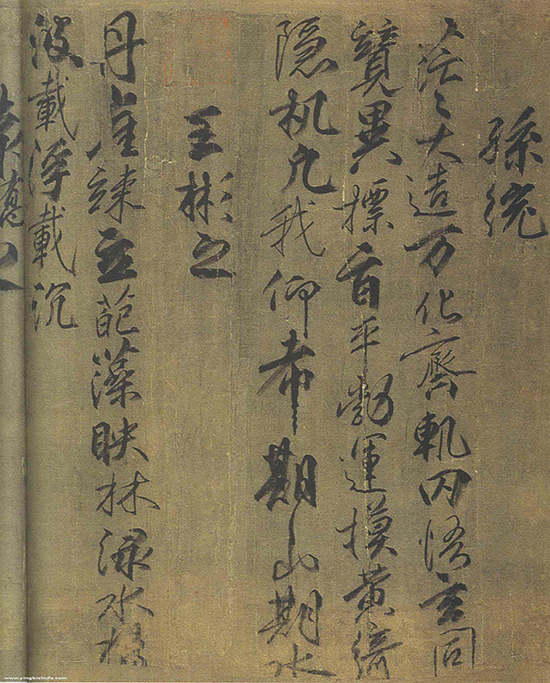 孫統
茫〻大造万化齊軌罔悟玄同
競異摽旨平勃運摸黃綺
隱机凡我仰希期山期水
王彬之
丹崖竦立葩藻映林渌水揚
波載浮載沉
www.yingbishufa.com